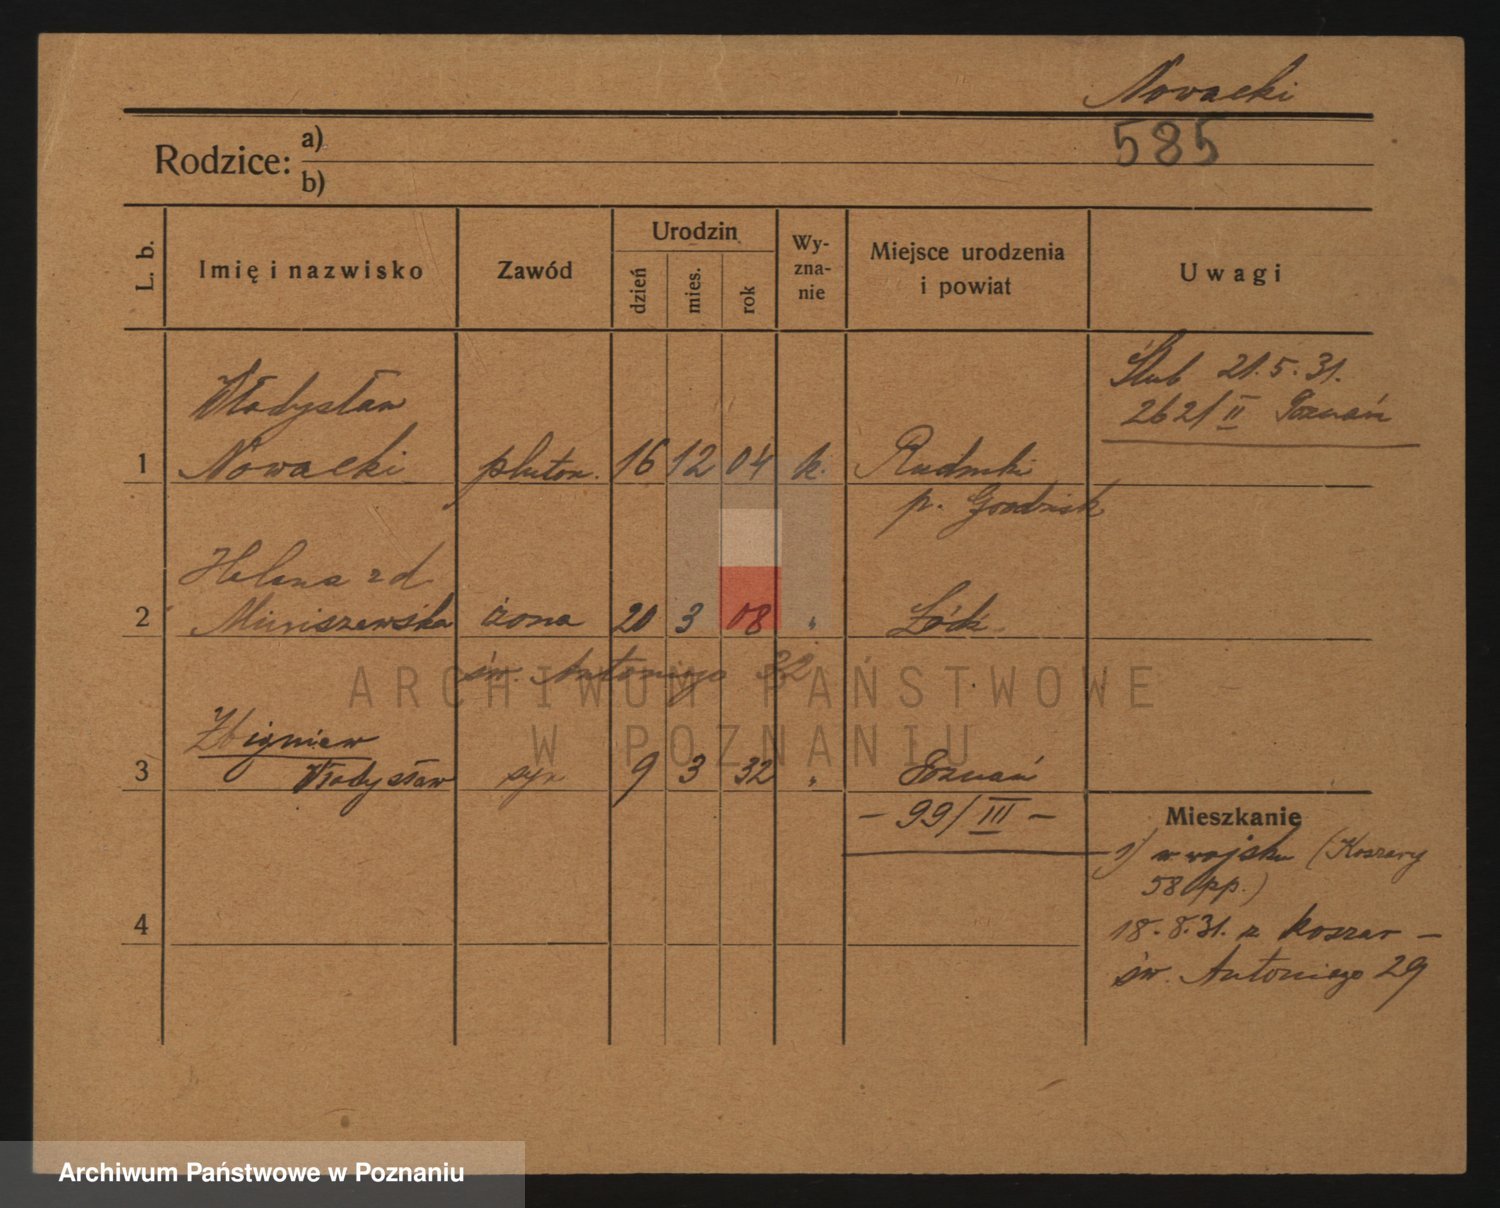 Nowacki
585
Rodzice: a)
b)
L. b.
Imię i nazwisko
Zawód
Urodzin
dzień
mies.
rok
Wy-
zna-
nie
Miejsce urodzenia
i powiat
Uwagi
Ślub 21.5.31.
2621/II Poznań
Władysław
1 Nowacki pluton. 16 12 04 k. Rudniki
p. Grodzisk
Helena z d
2 żona 20 3 08 " Łódź
św. Antoniego
Zbigniew
3 Władysław syn 9 3 32 " Poznań
- 99/III -
Mieszkanie
1) w wojsku (Koszary
58 pp.)
4
18.8.31. z koszar -
św. Antoniego 29
ARCHIWUM PAŃSTWOWE
W POZNANIU
Archiwum Państwowe w Poznaniu